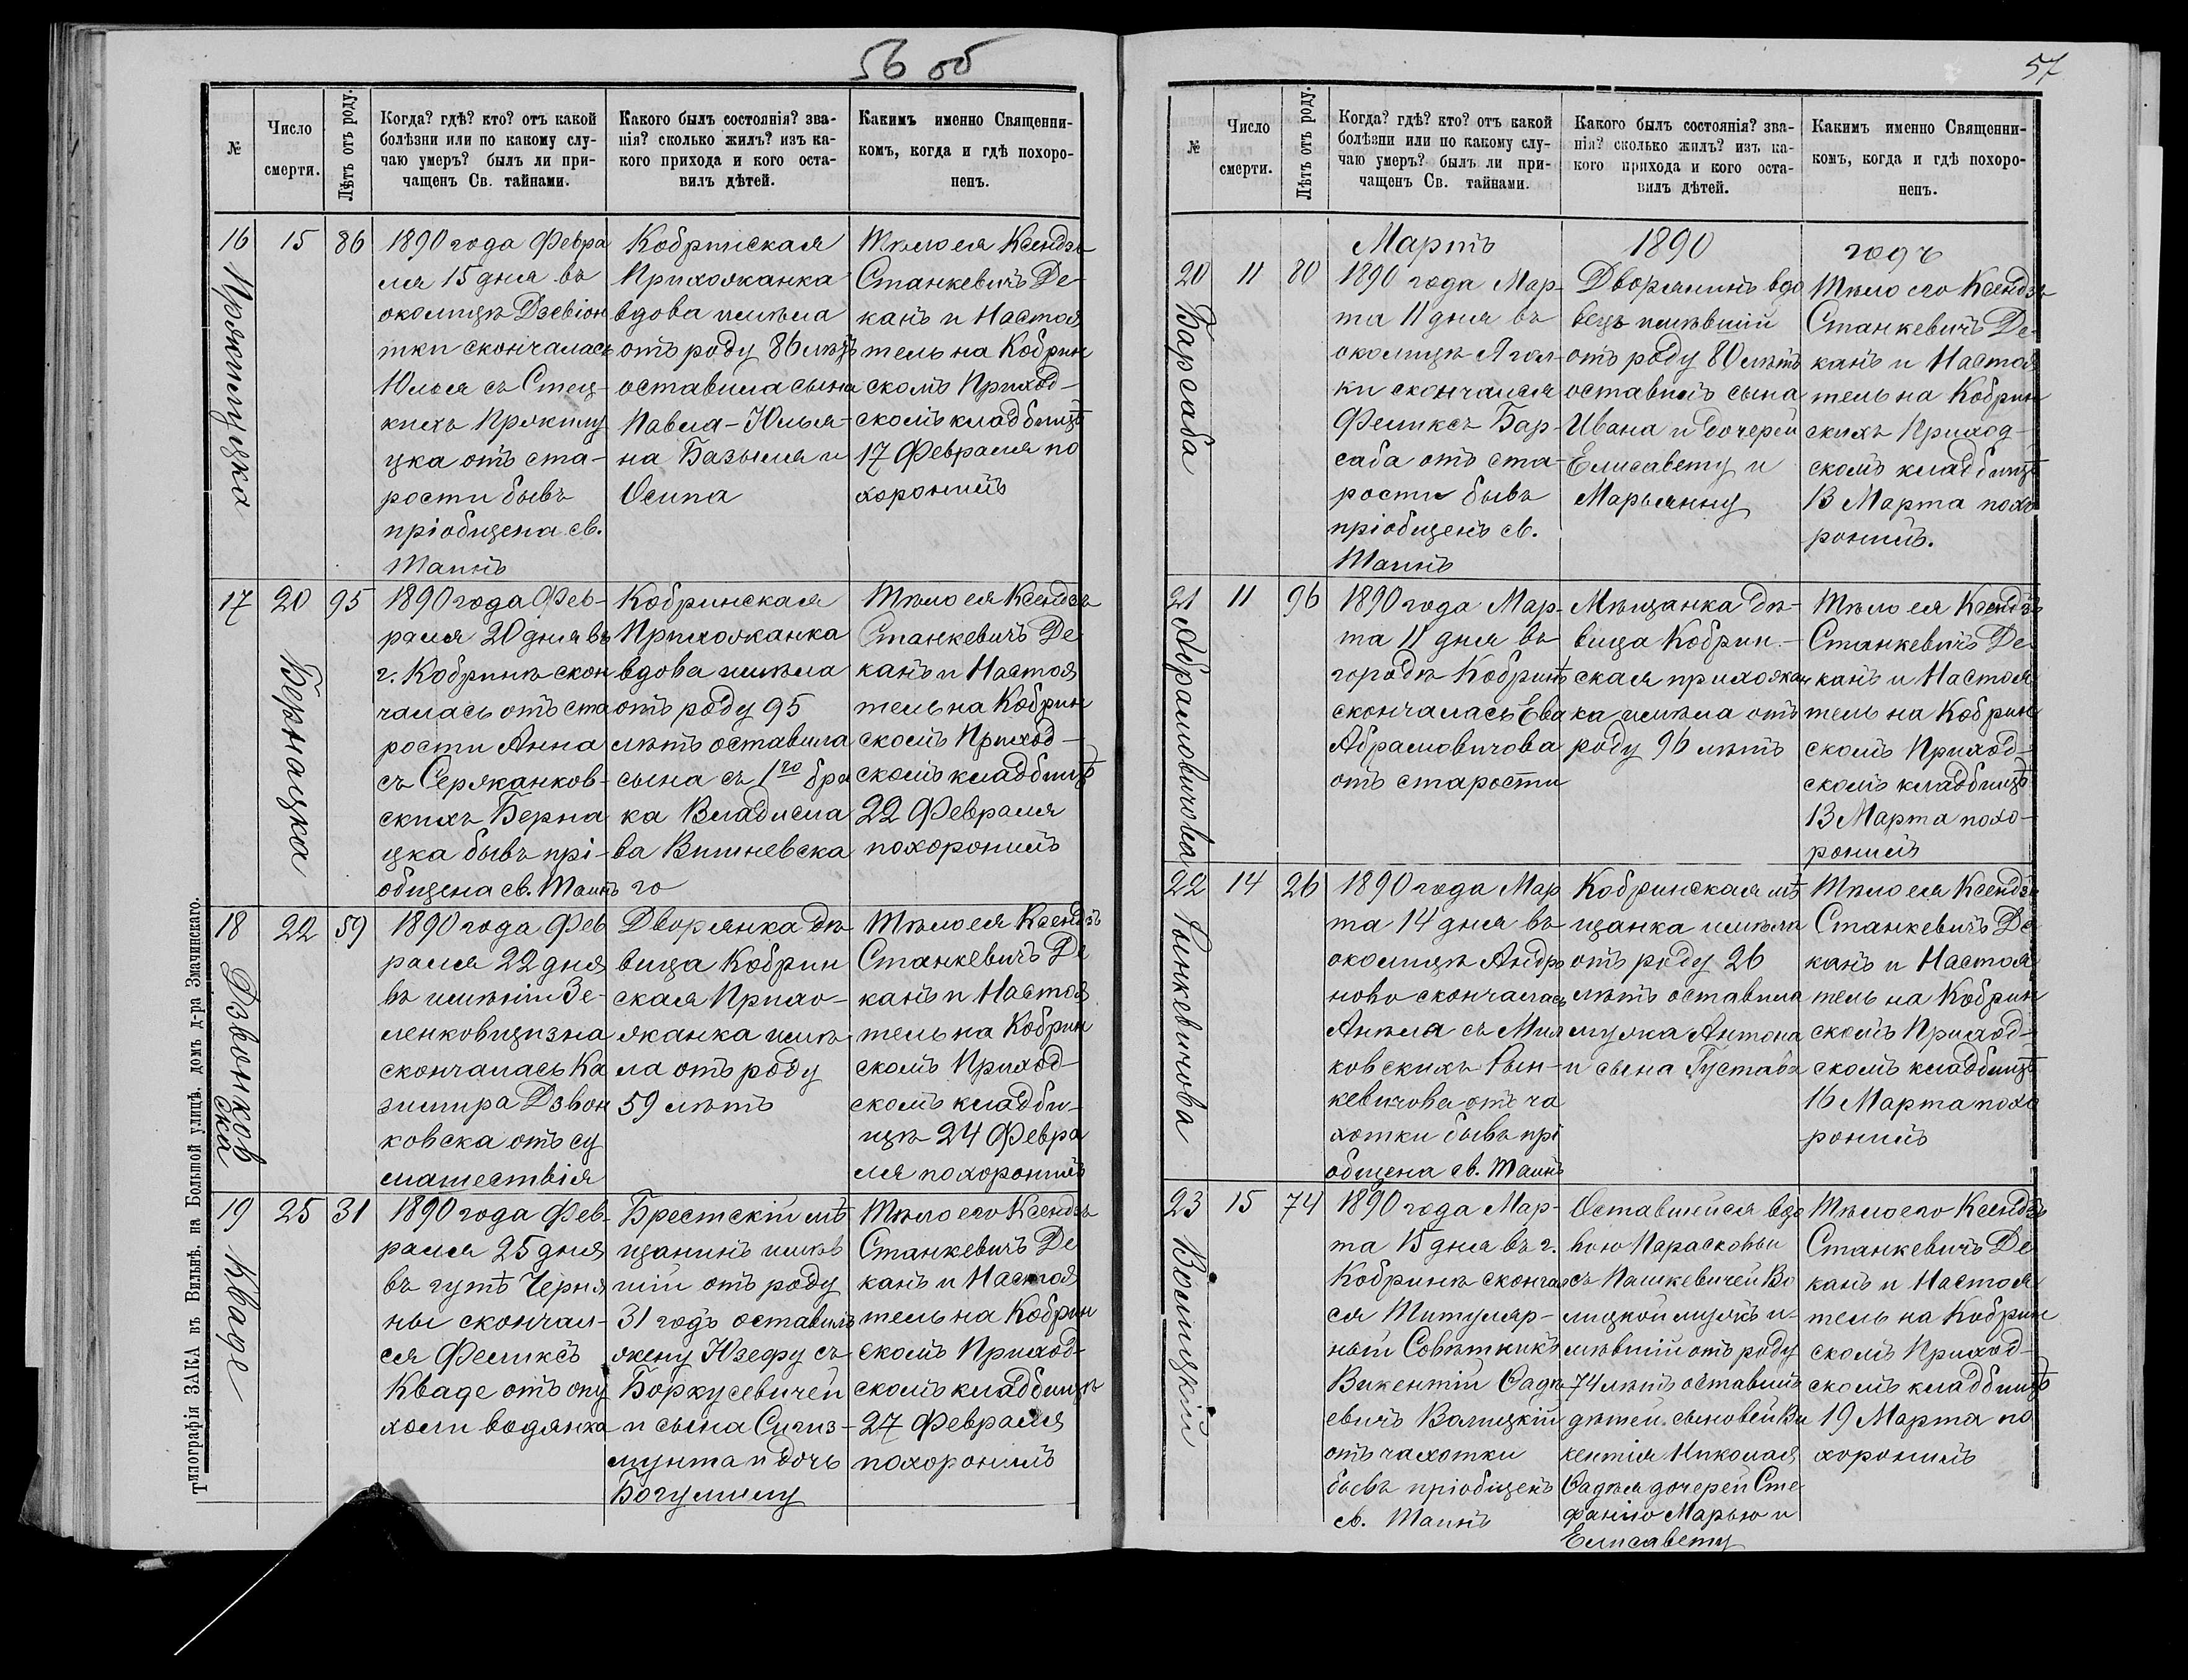 56 об
№
Число смерти.
Лѣтъ отъ роду.
Когда? гдѣ? кто? отъ какой
болѣзни или по какому слу-
чаю умеръ? былъ ли при-
чащенъ Св. тайнами.
Какого былъ состоянія? зва-
нія? сколько жилъ? изъ ка-
кого прихода и кого оста-
вилъ дѣтей.
Какимъ именно Священни-
комъ, когда и гдѣ похоро-
ненъ.
16
15
86
1890 года Февра
ля 15 дня въ
околицѣ
скончалась
Юлья съ Стец-
кихъ
цка отъ ста-
рости бывъ
пріобщена св.
Таинъ
Кобринская
Прихожанка
вдова имѣла
отъ роду 86 лѣтъ
оставила сына
Павла-Юлья-
на Базыля и
Осипа
Тѣло ея Ксендзъ
Станкевичъ Де-
канъ и Настоя
тель на Кобрин
скомъ Приход-
скомъ кладбищѣ
17 Февраля по
хоронилъ
17
Бернацка
20
95
1890 года Фев-
раля 20 дня въ
г. Кобринѣ скон
чалась отъ ста
рости Анна
съ Сержанков-
скихъ Берна
цка бывъ прі-
общена св. Таинъ
Кобринская
Прихожанка
вдова имѣла
отъ роду 95
лѣтъ оставила
сына съ 1го бра
ка Владисла
ва Вишневска
го
Тѣло ея Ксендзъ
Станкевичъ Де
канъ и Настоя
тель на Кобрин
скомъ Приход-
скомъ кладбищѣ
22 Февраля
похоронилъ
18
Дзвонков
ска
22
59
1890 года Фев
раля 22 дня
въ имѣніи Зе-
ленковщизна
скончалась Ка
зимира Дзвон
ковска отъ су
машествія
Дворянка дѣ
вица Кобрин
ская Прихо-
жанка имѣ
ла отъ роду
59 лѣтъ
Тѣло ея Ксендзъ
Станкевичъ Де
канъ и Настоя
тель на Кобрин
скомъ Приход-
скомъ кладби-
щѣ 24 Февра
ля похоронилъ
19
Кваде
25
31
1890 года Фев-
раля 25 дня
въ гутѣ Черня
ны скончал-
ся Феликсъ
Кваде отъ опу
холи водянка
Брестскій мѣ
щанинъ имѣв
шій отъ роду
31 годъ оставилъ
жену Юзефу съ
Боркусевичей
и сына Сигиз-
мунта и дочь
Богумилу
Тѣло его Ксендзъ
Станкевичъ Де
канъ и Настоя
тель на Кобрин
скомъ Приход-
скомъ кладбищѣ
27 Февраля
похоронилъ
Типографія ЗАКА въ Вильнѣ, на Большой улицѣ, домъ д-ра Змачинскаго.
57
№
Число смерти.
Лѣтъ отъ роду.
Когда? гдѣ? кто? отъ какой
болѣзни или по какому слу-
чаю умеръ? былъ ли при-
чащенъ Св. тайнами.
Какого былъ состоянія? зва-
нія? сколько жилъ? изъ ка-
кого прихода и кого оста-
вилъ дѣтей.
Какимъ именно Священни-
комъ, когда и гдѣ похоро-
ненъ.
Мартъ 1890 годъ
20
Барсаба
11
80
1890 года Мар-
та 11 дня въ
околицѣ
ки скончался
Феликсъ Бар-
саба отъ ста-
рости бывъ
пріобщенъ св.
Таинъ
Дворянинъ вдо
вецъ имѣвшій
отъ роду 80 лѣтъ
оставилъ сына
Ивана и дочерей
Елисавету и
Марьянну
Тѣло его Ксендзъ
Станкевичъ Де-
канъ и Настоя
тель на Кобрин
скихъ Приход-
скомъ кладбищѣ
13 Марта похо
ронилъ.
21
Абрамовичова
11
96
1890 года Мар-
та 11 дня въ
городѣ Кобринѣ
скончалась Ева
Абрамовичова
отъ старости
Мѣщанка дѣ-
вица Кобрин-
ская прихожан
ка имѣла отъ
роду 96 лѣтъ
Тѣло ея Ксендзъ
Станкевичъ Де
канъ и Настоя
тель на Кобрин
скомъ Приход-
скомъ кладбищѣ
13 Марта похо-
ронилъ
22
Рынкевичова
14
26
1890 года Мар
та 14 дня въ
околицѣ Андро
ново скончалась
Анѣла съ Мил
ковскихъ Рын-
кевичова отъ ча
хотки бывъ прі
общена св. Таинъ
Кобринская мѣ
щанка имѣла
отъ роду 26
лѣтъ оставила
мужа Антона
и сына Густава
Тѣло ея Ксендзъ
Станкевичъ Де
канъ и Настоя
тель на Кобрин
скомъ Приход-
скомъ кладбищѣ
16 Марта похо
ронилъ
23
Волицкій
15
74
1890 года Мар-
та 15 дня въ г.
Кобринѣ скончал
ся Титуляр-
ный Совѣтникъ
Викентій Фадѣ
евичъ Волицкій
отъ чахотки
бывъ пріобщенъ
св. Таинъ
Оставшейся вдо
вою Парасковьи
съ Пашкевичей Во
лицкой мужъ и-
мѣвшій отъ роду
74 лѣтъ оставилъ
дѣтей. сыновей Ви
кентія Николая
Фадѣя дочерей Сте
фанію Марью и
Елисавету
Тѣло его Ксендзъ
Станкевичъ Де
канъ и Настоя
тель на Кобрин
скомъ Приход-
скомъ кладбищѣ
19 Марта по
хоронилъ